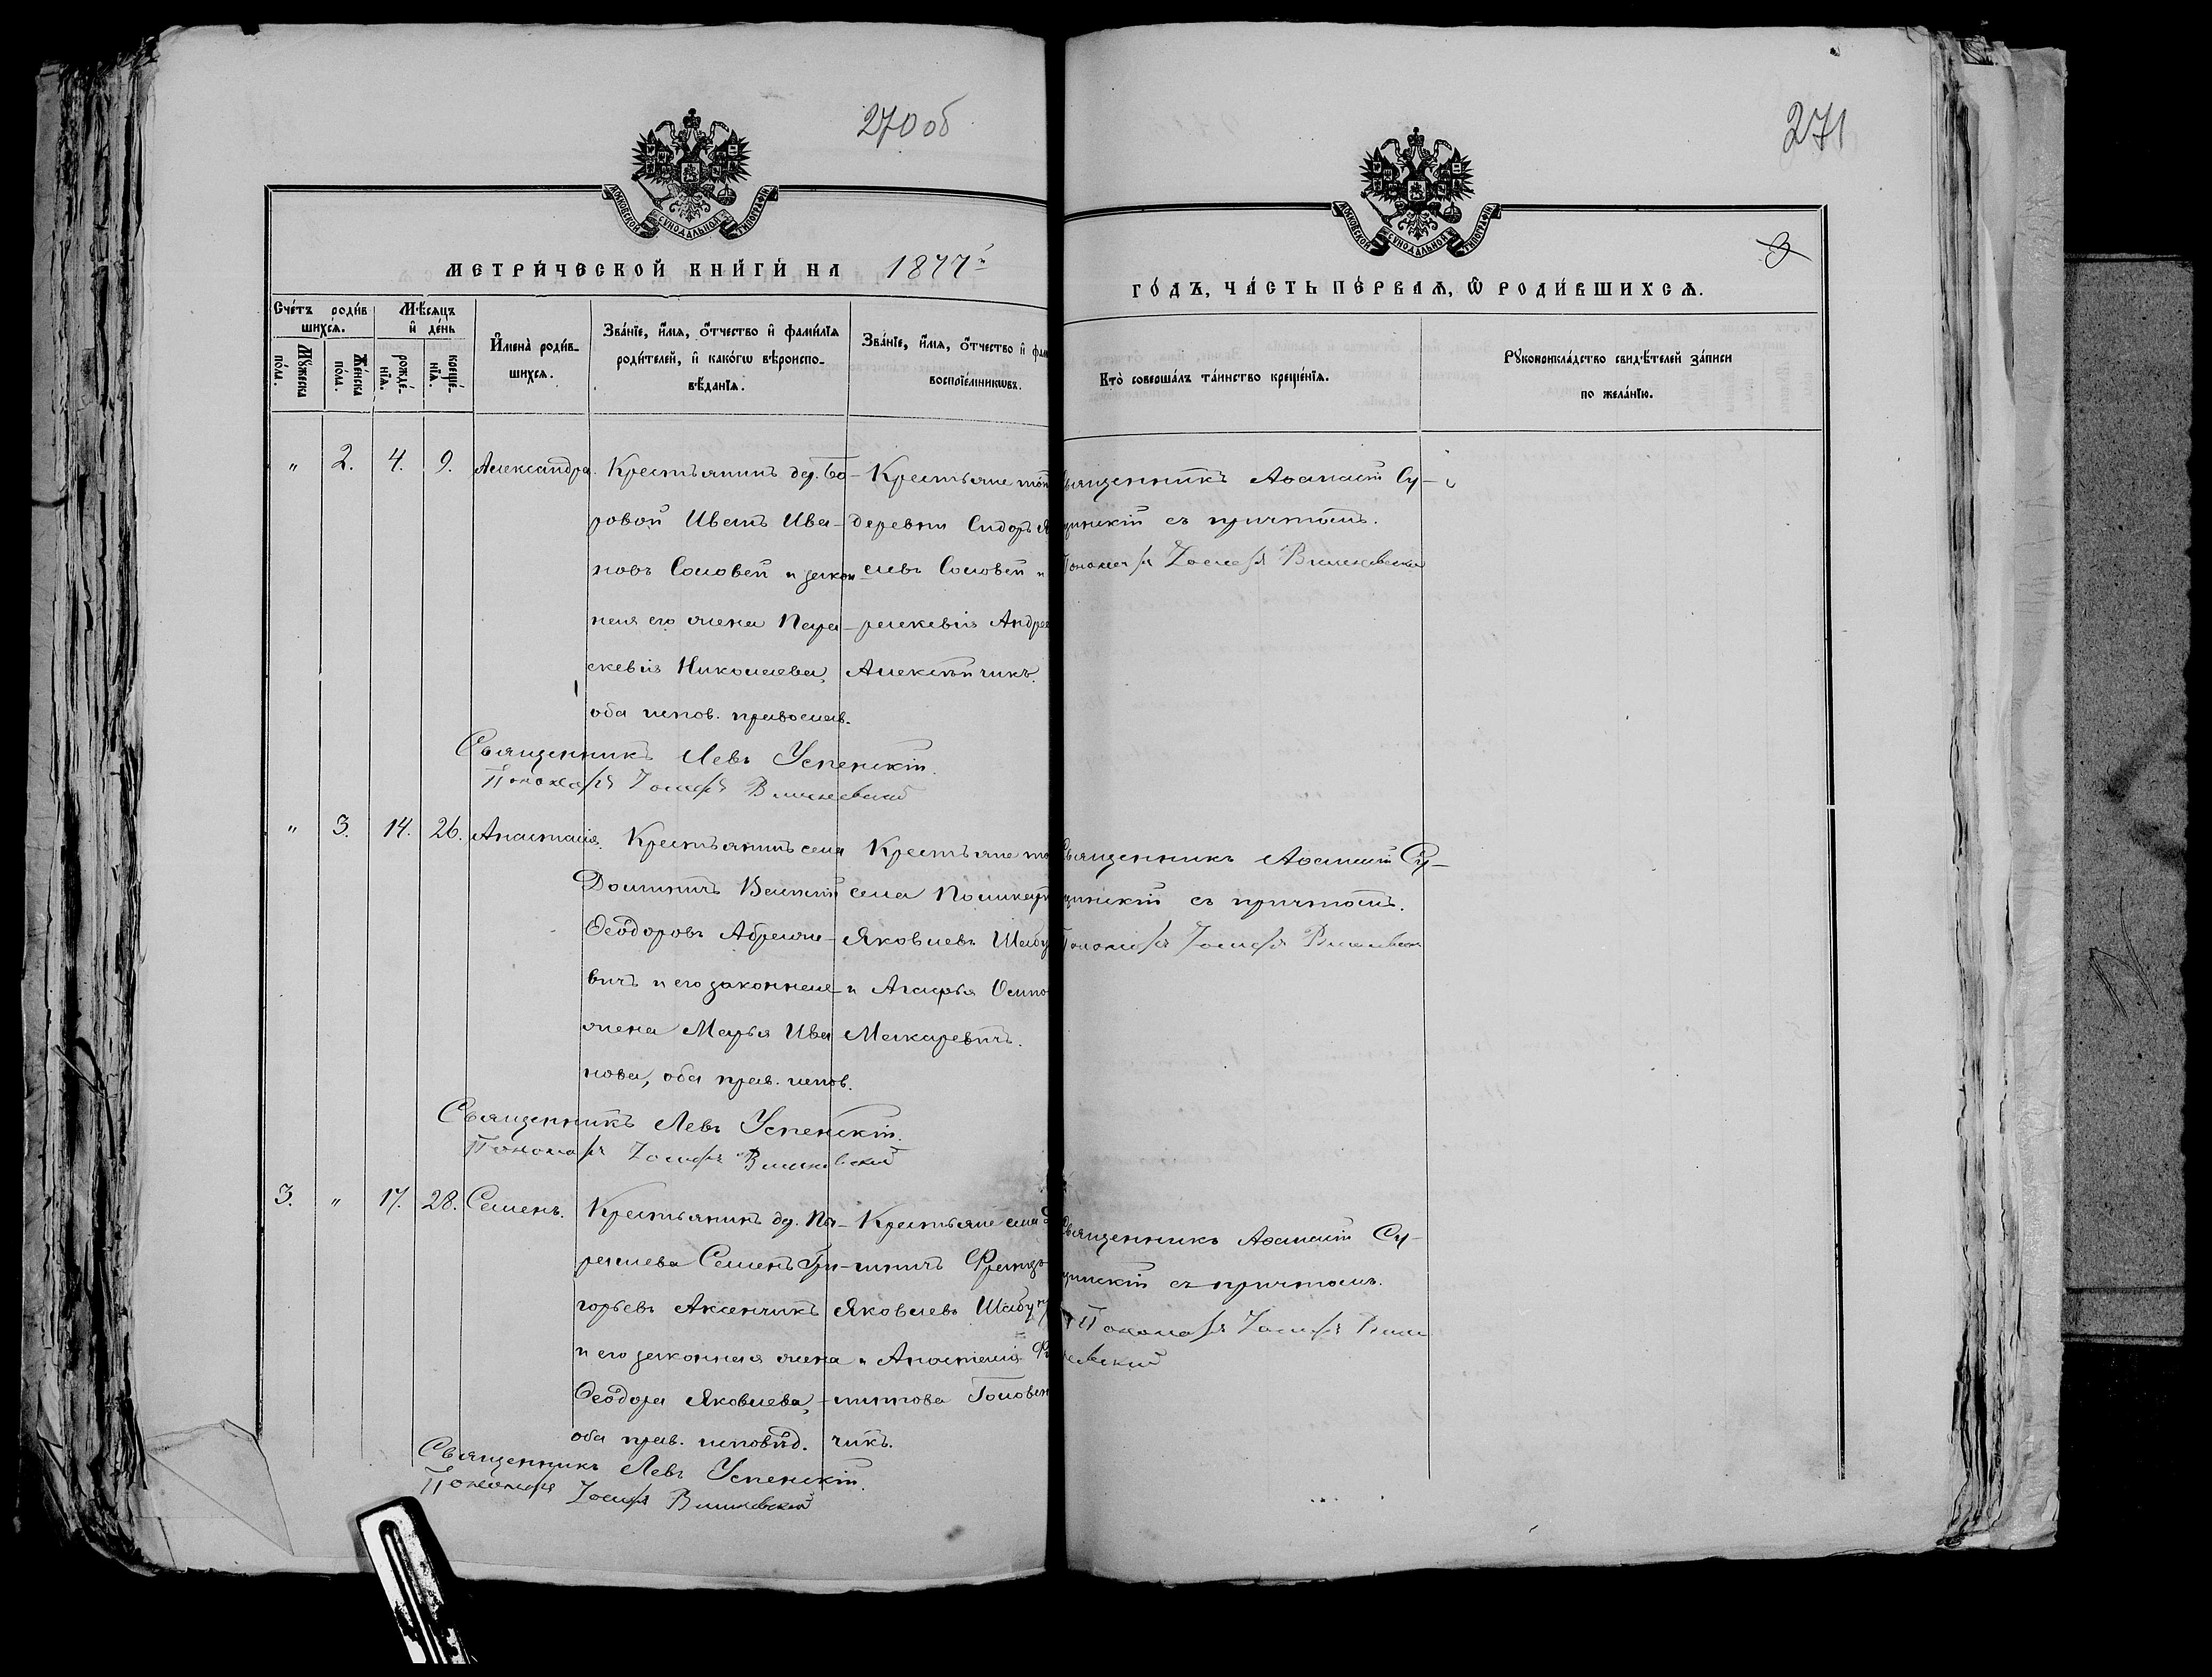 270 об
271
МОСКОВСКОЙ СУНОДАЛЬНОЙ ТИПОГРАФІИ
МОСКОВСКОЙ СУНОДАЛЬНОЙ ТИПОГРАФІИ
МЕТРИ́ЧЕСКОЙ КНИ́ГИ НА 1877
ГО́ДЪ, ЧА́СТЬ ПЕ́РВАѦ, Ѡ РОДИ́ВШИХСѦ.
Сче́тъ роди́в
шихсѧ.
Мѣ́сѧцъ
и҆ де́нь
Мꙋ́жеска
по́ла.
Же́нска
по́ла.
рожде́-
нїѧ.
креще́-
нїѧ.
И҆мена̀ роди́в-
шихсѧ.
Зва́нїе, и҆́мѧ, ѻ҆́тчество и҆ фамі́лїѧ
роди́телей, и҆ како́гѡ вѣроиспо-
вѣ́данїѧ.
Зва́нїе, и҆́мѧ, ѻ҆́тчество и҆ фам
воспрїе́мникѡвъ.
Кто̀ соверша́лъ та́инство креще́нїѧ.
Рꙋкоприкла́дство свидѣ́телей за́писи
по жела́нїю.
" 2. 4. 9. Александра.
Крестьянинъ дер. Бо-
ровой Иванъ Ива-
новъ Соловей и закон
ная его жена Пара-
скевія Николаева,
оба испов. православ.
Крестьяне той
деревни Сидоръ
Соловей и
раскевія Андре
Алексѣйчикъ.
Священникъ Аѳанасій Су-
щинскій съ причтомъ.
Пономарь Іосифъ Вишневский
Священникъ Левъ Успенскій.
Пономарь Іосифъ Вишневский
" 3. 14. 26. Анастасія.
Крестьянинъ села
Великій
Ѳеодоровъ Абрамо-
вичъ и его законная
жена Марья Ива
нова, оба прав. испов.
Крестьяне то
села Поликарп
Яковлевъ Шабу
и Агафья Осипо
Макаревичъ.
Священникъ Аѳанасій Су-
щинскій съ причтомъ.
Пономарь Іосифъ Вишневскій
Священникъ Левъ Успенскій.
Пономарь Іосифъ Вишневский
3. " 17. 28. Семенъ.
Крестьянинъ де.
Семенъ Гри-
горьевъ Аксенчикъ
и его законная жена
Ѳеодора Яковлева,
оба прав. исповѣд.
Крестьяне села
Францъ
Яковлевъ Шабу
и Анастасія Фи
липпова Головен
чикъ.
Священникъ Аѳанасій Су-
щинскій съ причтомъ.
Пономарь Іосифъ Виш
невский
Священникъ Левъ Успенскій.
Пономарь Іосифъ Вишневский